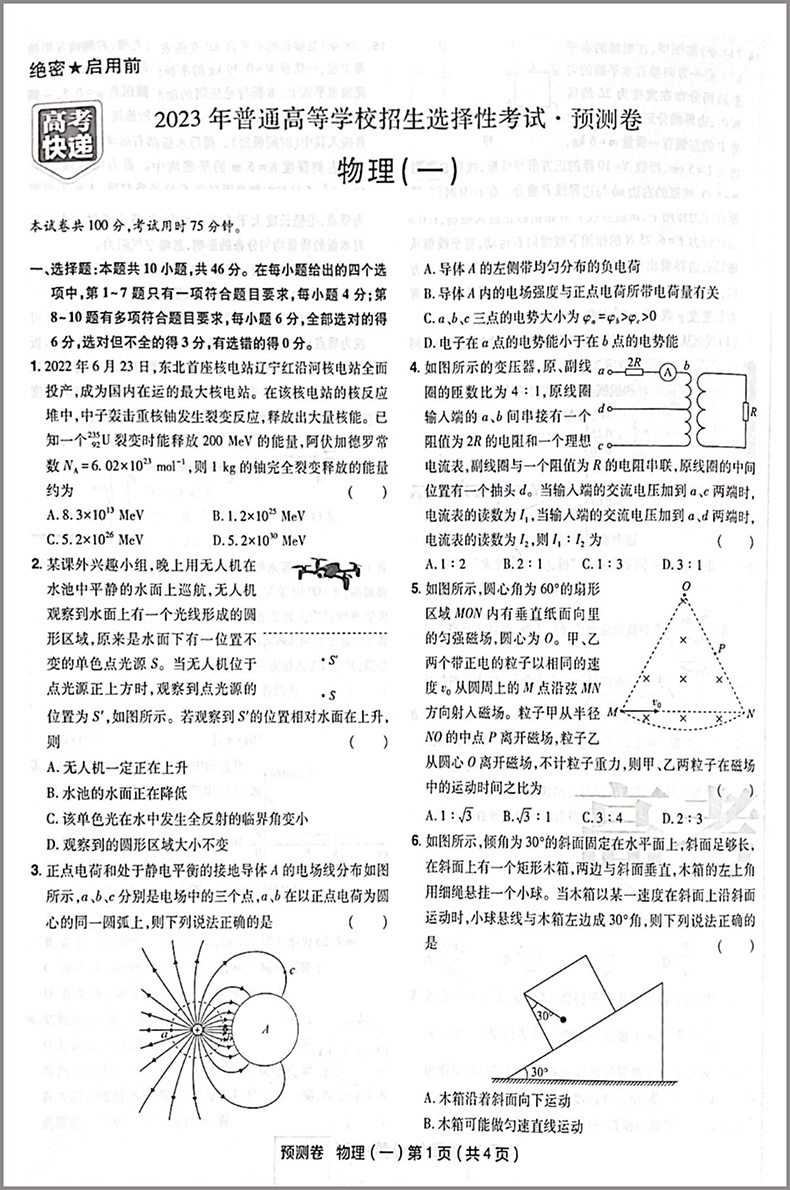 绝密★启用前
高考快递
2023年普通高等学校招生选择性考试·预测卷
物理(一)
本试卷共100分,考试用时75分钟。
一、选择题:本题共10小题,共46分。在每小题给出的四个选
项中,第1~7题只有一项符合题目要求,每小题4分;第
8~10题有多项符合题目要求,每小题6分,全部选对的得
6分,选对但不全的得3分,有选错的得0分。
1. 2022年6月23日,东北首座核电站辽宁红沿河核电站全面
投产,成为国内在运的最大核电站。在该核电站的核反应
堆中,中子轰击重核铀发生裂变反应,释放出大量核能。已
知一个²³⁵₉₂U裂变时能释放200 MeV的能量,阿伏加德罗常
数N_A=6.02×10²³ mol⁻¹,则1 kg的铀完全裂变释放的能量
约为 ( )
A. 8.3×10¹³ MeV B. 1.2×10²⁵ MeV
C. 5.2×10²⁶ MeV D. 5.2×10³⁰ MeV
2. 某课外兴趣小组,晚上用无人机在
水池中平静的水面上巡航,无人机
观察到水面上有一个光线形成的圆
形区域,原来是水面下有一位置不
变的单色点光源S。当无人机位于
点光源正上方时,观察到点光源的
位置为S′,如图所示。若观察到S′的位置相对水面在上升,
则 ( )
S′
S
A. 无人机一定正在上升
B. 水池的水面正在降低
C. 该单色光在水中发生全反射的临界角变小
D. 观察到的圆形区域大小不变
3. 正点电荷和处于静电平衡的接地导体A的电场线分布如图
所示,a、b、c分别是电场中的三个点,a、b在以正点电荷为圆
心的同一圆弧上,则下列说法正确的是 ( )
a
b
c
A
A. 导体A的左侧带均匀分布的负电荷
B. 导体A内的电场强度与正点电荷所带电荷量有关
C. a、b、c三点的电势大小为φₐ=φ_b>φ_c>0
D. 电子在a点的电势能小于在b点的电势能
4. 如图所示的变压器,原、副线
圈的匝数比为4∶1,原线圈
输入端的a、b间串接有一个
阻值为2R的电阻和一个理想
电流表,副线圈与一个阻值为R的电阻串联,原线圈的中间
位置有一个抽头d。当输入端的交流电压加到a、c两端时,
电流表的读数为I₁,当输入端的交流电压加到a、d两端时,
电流表的读数为I₂,则I₁∶I₂为 ( )
a
2R
A
b
d
c
R
A. 1∶2 B. 2∶1 C. 1∶3 D. 3∶1
5. 如图所示,圆心角为60°的扇形
区域MON内有垂直纸面向里
的匀强磁场,圆心为O。甲、乙
两个带正电的粒子以相同的速
度v₀从圆周上的M点沿弦MN
方向射入磁场。粒子甲从半径
NO的中点P离开磁场,粒子乙
从圆心O离开磁场,不计粒子重力,则甲、乙两粒子在磁场
中的运动时间之比为 ( )
O
P
M
v₀
N
A. 1∶√3 B. √3∶1 C. 3∶4 D. 2∶3
6. 如图所示,倾角为30°的斜面固定在水平面上,斜面足够长,
在斜面上有一个矩形木箱,两边与斜面垂直,木箱的左上角
用细绳悬挂一个小球。当木箱以某一速度在斜面上沿斜面
运动时,小球悬线与木箱左边成30°角,则下列说法正确的
是 ( )
30°
30°
A. 木箱沿着斜面向下运动
B. 木箱可能做匀速直线运动
预测卷 物理(一)第1页(共4页)